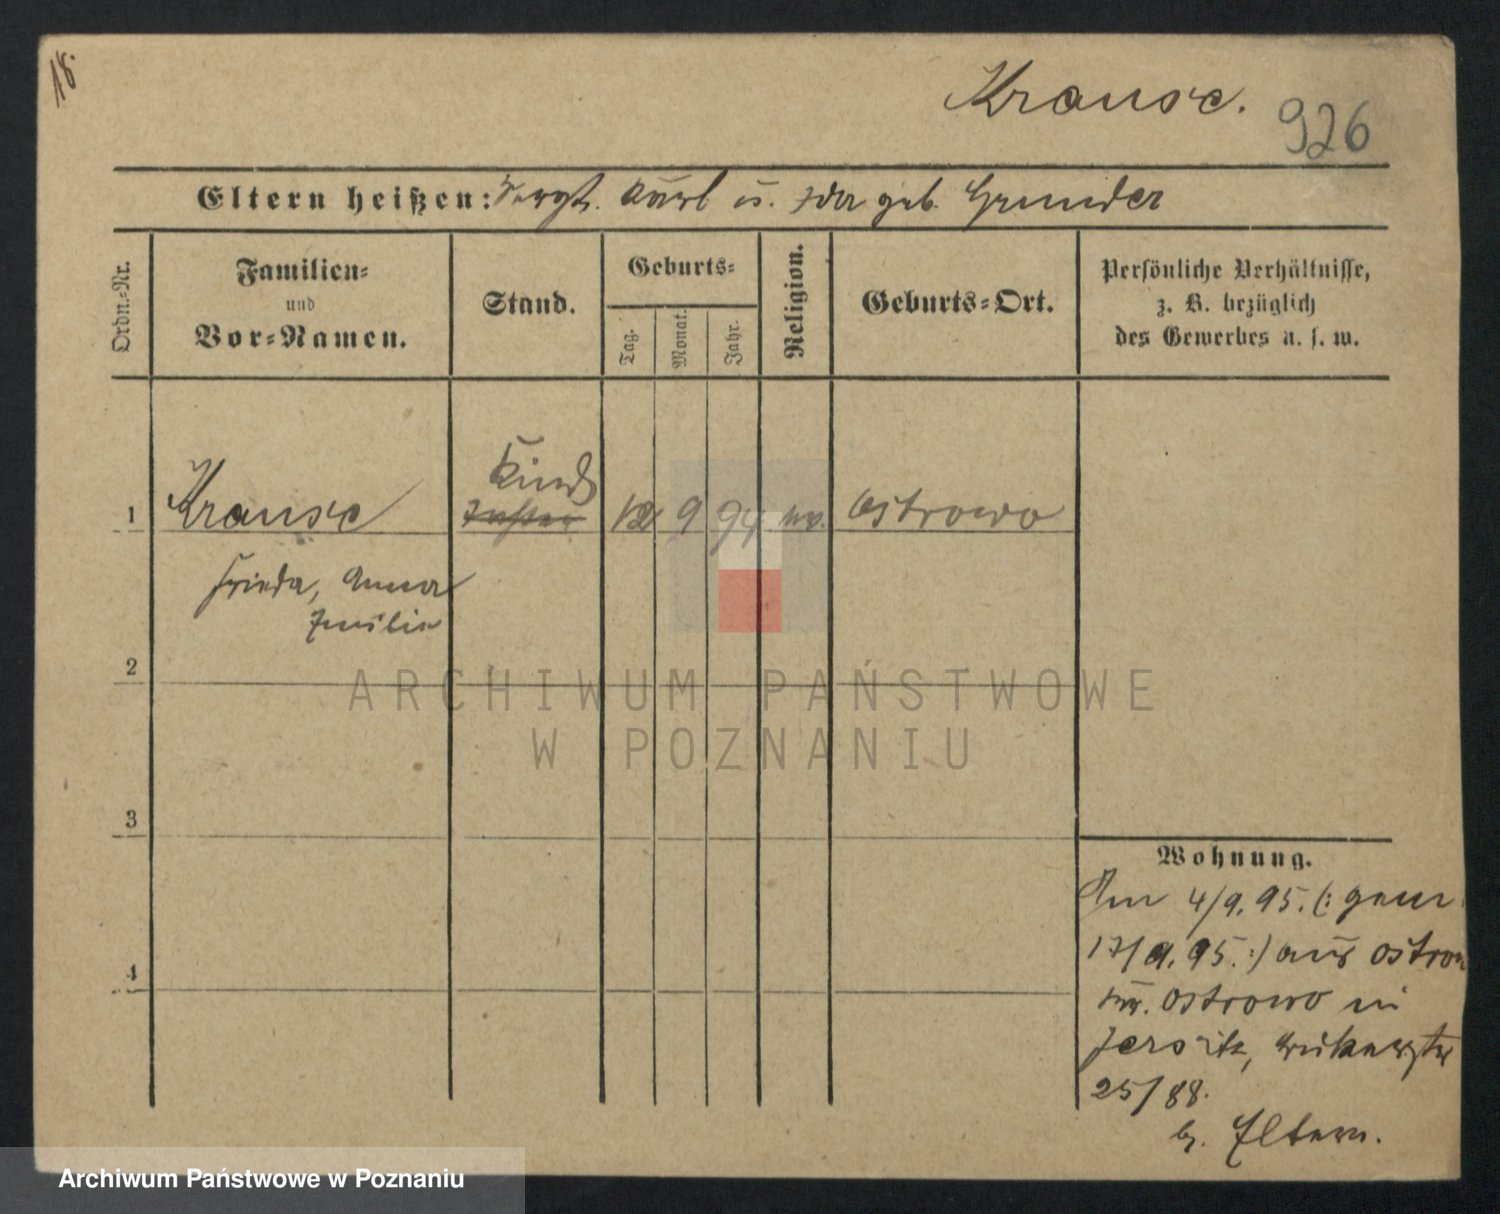 18.
Krause.
926
Eltern heißen: Sergt. Karl u. Ida geb. Grunder
Ordn.-Nr.
Familien-
und
Vor-Namen.
Stand.
Geburts-
Tag.
Monat.
Jahr.
Religion.
Geburts-Ort.
Persönliche Verhältnisse,
z. B. bezüglich
des Gewerbes u. s. w.
Kind
1 Krause 12 9 94 ev. Ostrowo
Frieda, Anna
Emilie
2
ARCHIWUM PAŃSTWOWE
W POZNANIU
3
Wohnung.
Am 4/9.95. (: gem.
17/9.95. :) aus Ostrow
Kr. Ostrowo in
Jersitz,
25/88.
b. Eltern.
4
Archiwum Państwowe w Poznaniu